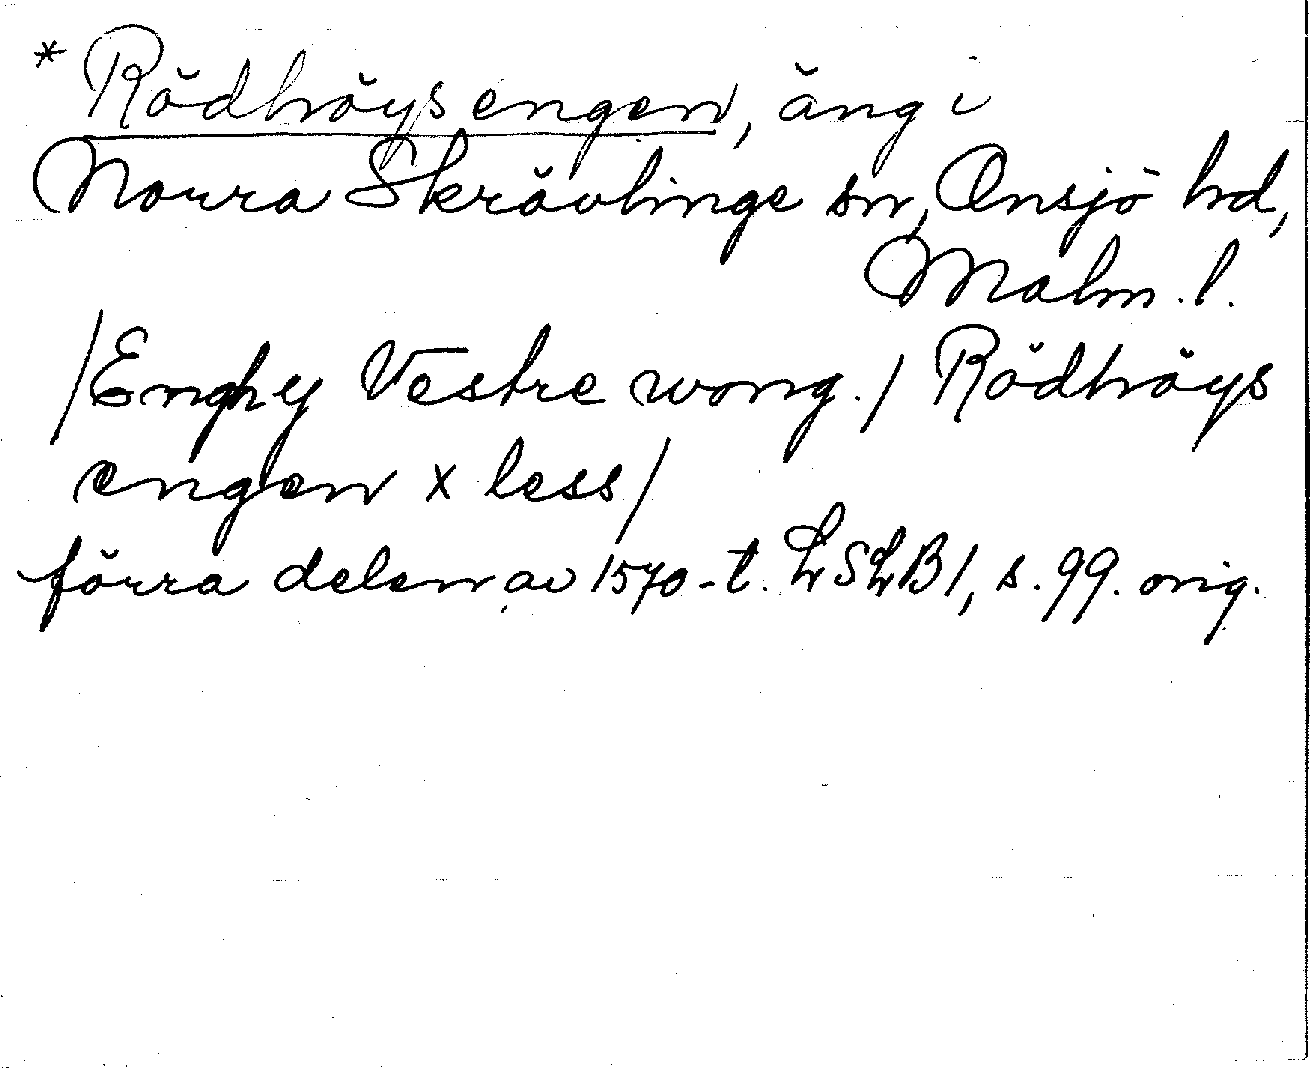 * Rödhöys engen, äng i
Norra Skrävlinge sn, Onsjö hd,
Malm. l.
/Enghy Vestre wong./ Rödhöys
engen x less/
förra delen av 1570-t. LSLB1, s. 99. orig.